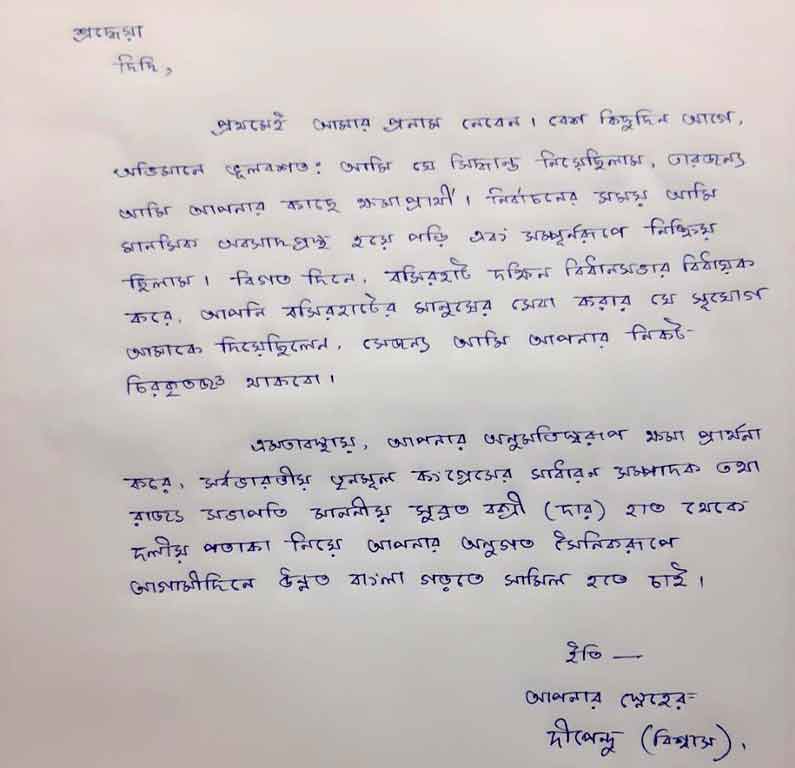 শ্রদ্ধেয়া
দিদি,
প্রথমেই আমার প্রনাম নেবেন। বেশ কিছুদিন আগে,
অভিমানে ভুলবশত: আমি যে সিদ্ধান্ত নিয়েছিলাম, তারজন্য
আমি আপনার কাছে ক্ষমাপ্রার্থী। নির্বাচনের সময় আমি
মানসিক অবসাদগ্রস্থ হয়ে পড়ি এবং সম্পূর্নরূপে নিষ্ক্রিয়
ছিলাম। বিগত দিনে, বসিরহাট দক্ষিন বিধানসভার বিধায়ক
করে, আপনি বসিরহাটের মানুষের সেবা করার যে সুযোগ
আমাকে দিয়েছিলেন, সেজন্য আমি আপনার নিকট-
চিরকৃতজ্ঞ থাকবো।
এমতাবস্থায়, আপনার অনুমতিস্বরূপ ক্ষমা প্রার্থনা
করে, সর্বভারতীয় তৃনমূল কংগ্রেসের সাধারন সম্পাদক তথা
রাজ্য সভাপতি মাননীয় সুব্রত বক্সী (দার) হাত থেকে
দলীয় পতাকা নিয়ে আপনার অনুগত সৈনিকরূপে
আগামীদিনে উন্নত বাংলা গড়তে সামিল হতে চাই।
ইতি —
আপনার স্নেহের-
দীপেন্দু (বিশ্বাস),